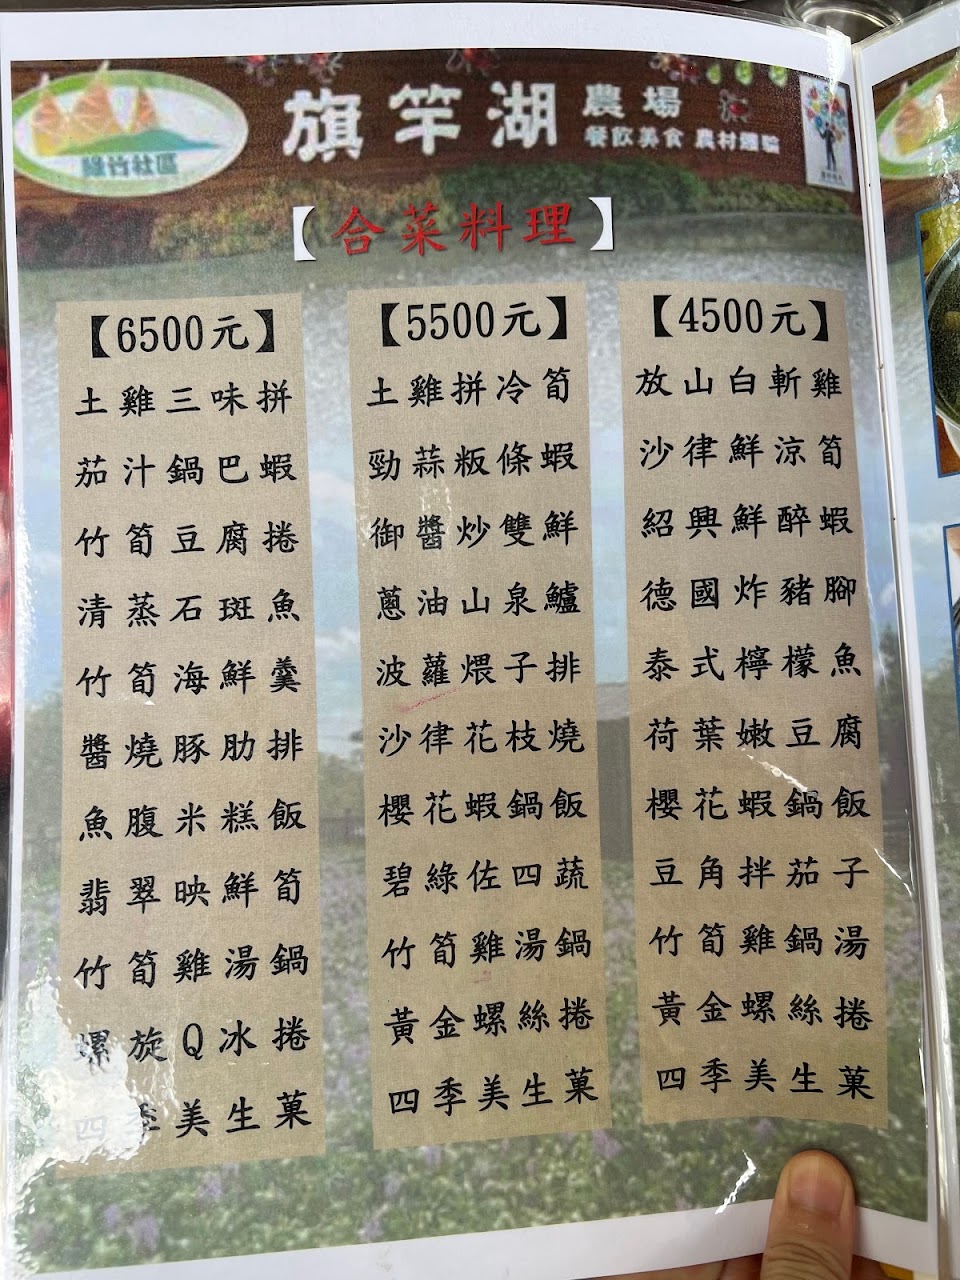 綠竹社區
旗竿湖農場
餐飲美食 農村體驗
【合菜料理】
【6500元】
土雞三味拼
茄汁鍋巴蝦
竹筍豆腐捲
清蒸石斑魚
竹筍海鮮羹
醬燒豚肋排
魚腹米糕飯
翡翠映鮮筍
竹筍雞湯鍋
螺旋Q冰捲
四季美生菓
【5500元】
土雞拼冷筍
勁蒜粄條蝦
御醬炒雙鮮
蔥油山泉鱸
波蘿煨子排
沙律花枝燒
櫻花蝦鍋飯
碧綠佐四蔬
竹筍雞湯鍋
黃金螺絲捲
四季美生菓
【4500元】
放山白斬雞
沙律鮮涼筍
紹興鮮醉蝦
德國炸豬腳
泰式檸檬魚
荷葉嫩豆腐
櫻花蝦鍋飯
豆角拌茄子
竹筍雞鍋湯
黃金螺絲捲
四季美生菓